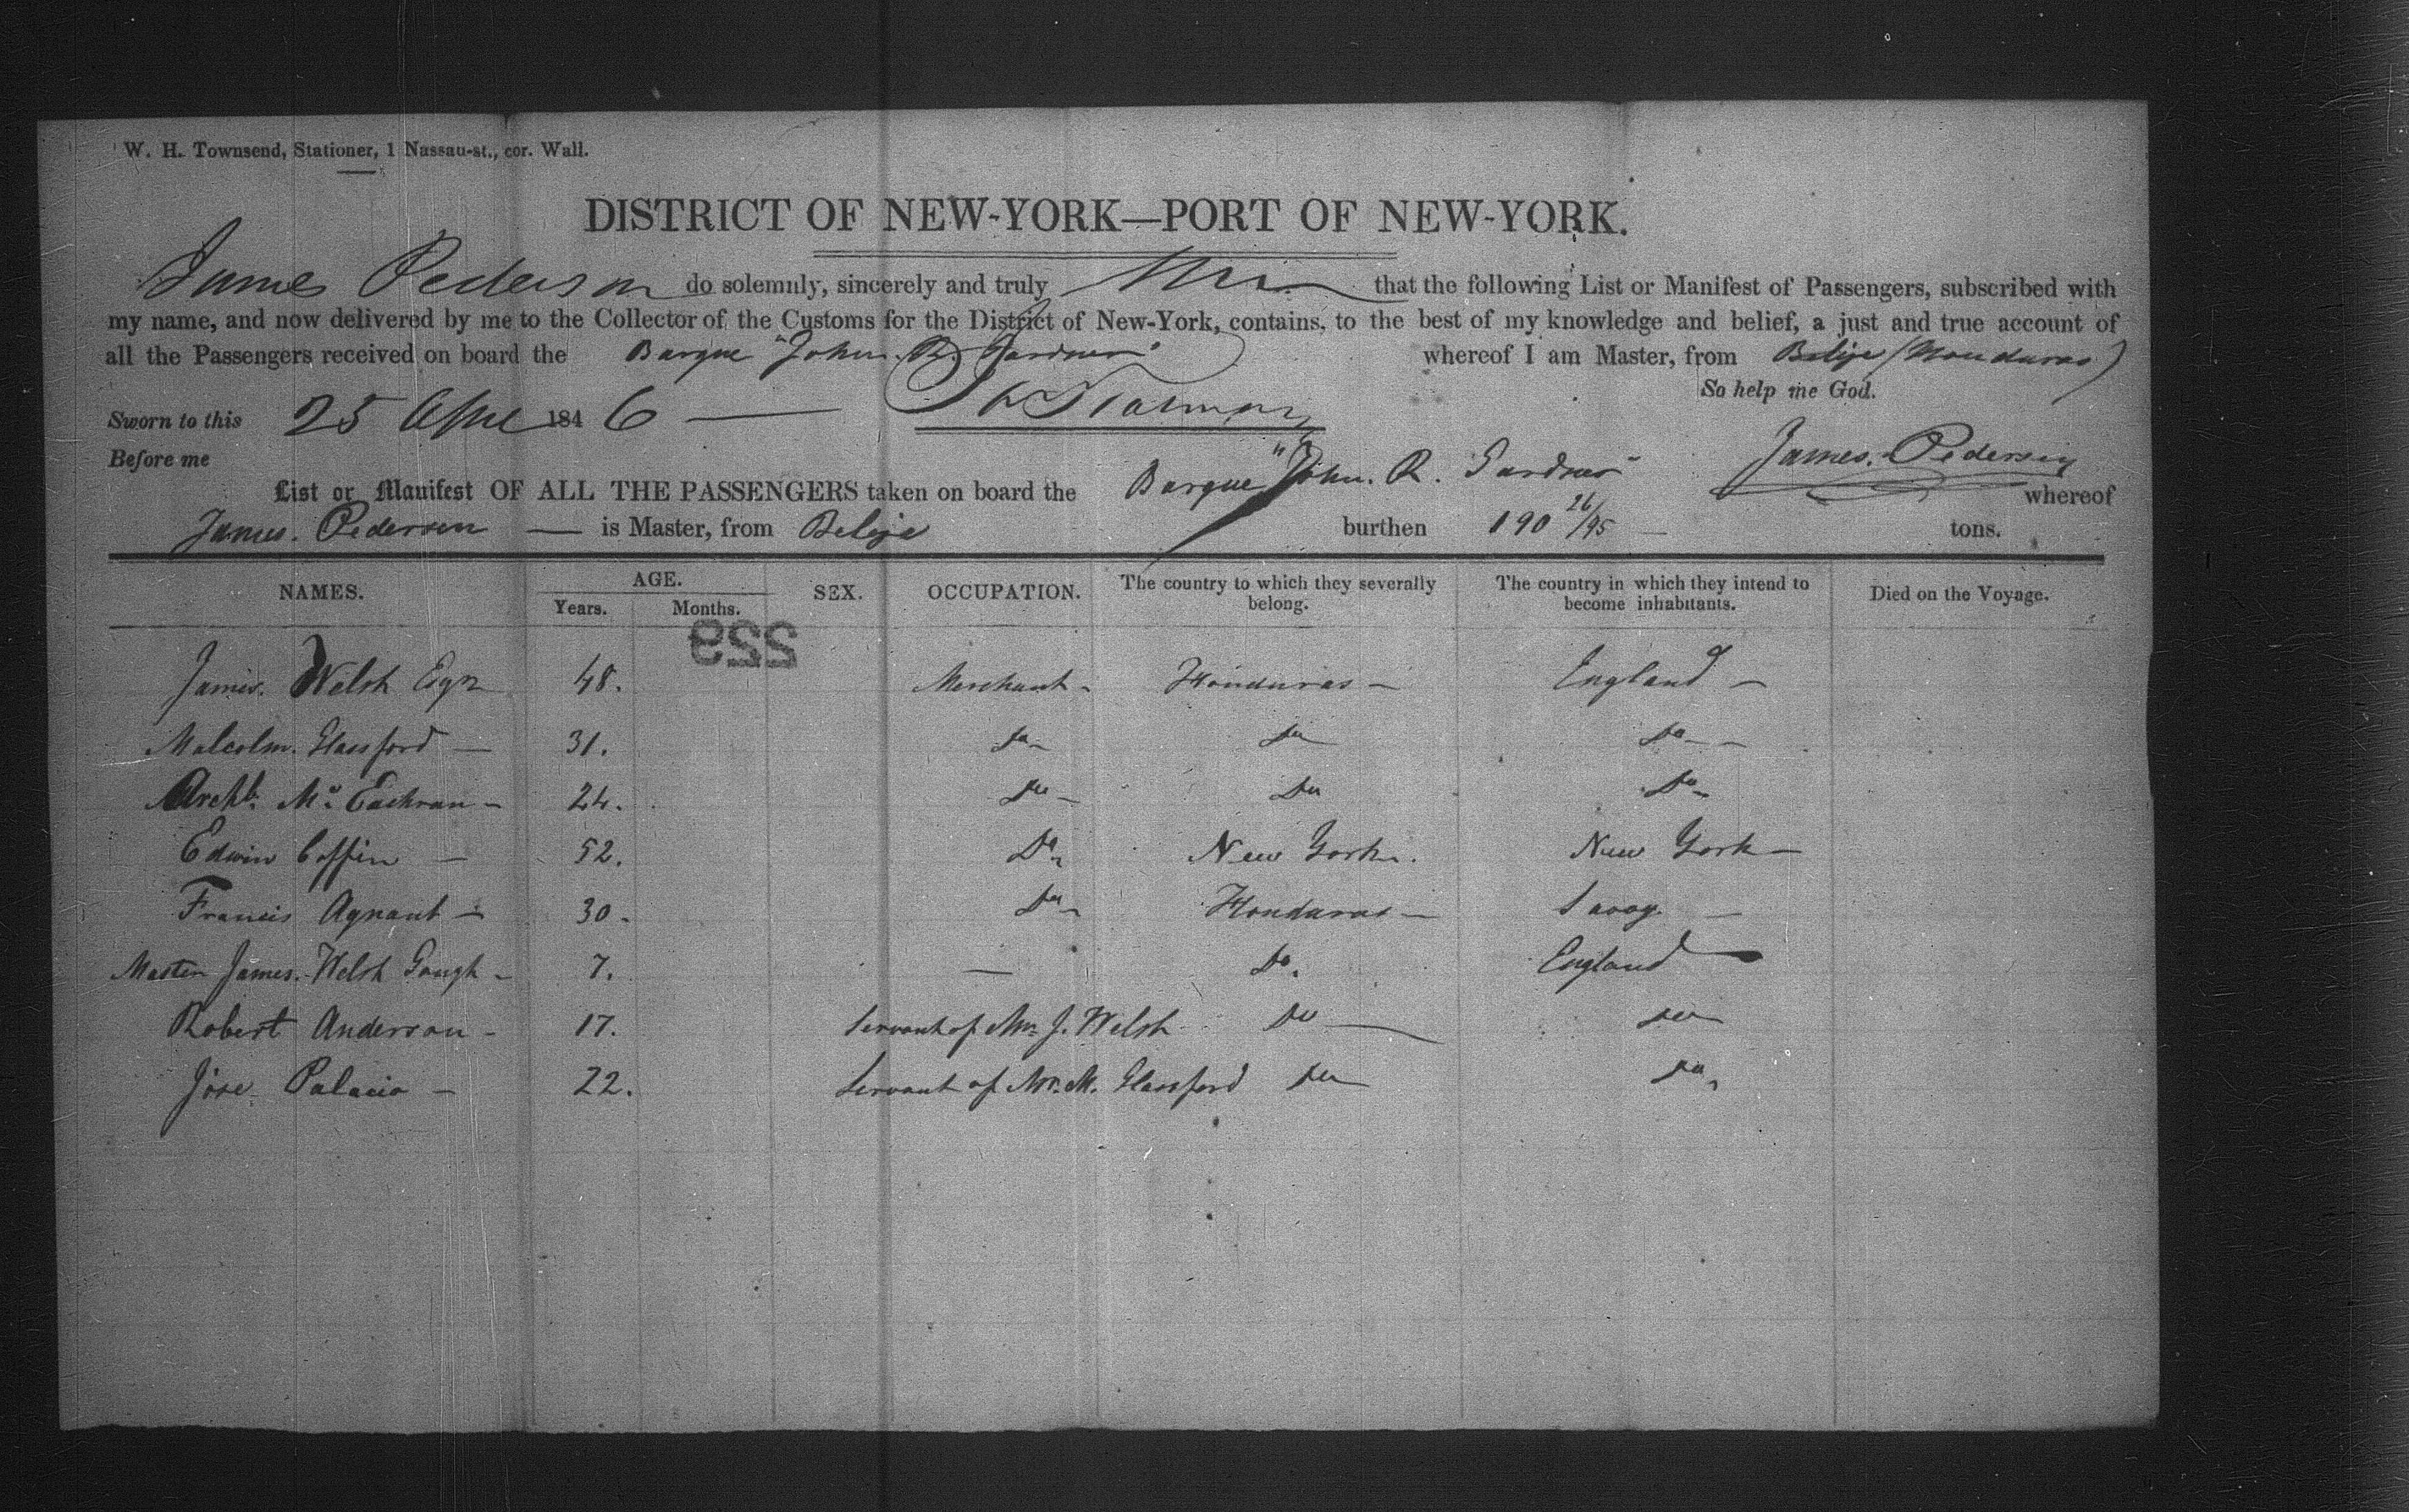 W. H. Townsend, Stationer, 1 Nassau-st., cor. Wall.
DISTRICT OF NEW-YORK—PORT OF NEW-YORK.
James Pedersen do solemnly, sincerely and truly that the following List or Manifest of Passengers, subscribed with
my name, and now delivered by me to the Collector of the Customs for the District of New-York, contains, to the best of my knowledge and belief, a just and true account of
all the Passengers received on board the Barque "John. R. Gardner" whereof I am Master, from Belize (Honduras)
So help me God.
Sworn to this 25 Apl 1846
Before me
James. Pedersen
List or Manifest OF ALL THE PASSENGERS taken on board the Barque "John. R. Gardner" whereof
James. Pedersen — is Master, from Belize burthen 190 26/95 — tons.
NAMES. AGE. SEX. OCCUPATION. The country to which they severally belong. The country in which they intend to become inhabitants. Died on the Voyage.
Years. Months.
229
James. Welsh Esqr 48. Merchant - Honduras — England —
Malcolm. Glassford — 31. Do - Do Do —
Archb. Mc. Eachran - 24. Do - Do Do -
Edwin Coffin — 52. Do - New York. New York —
Francis Agnant - 30. Do - Honduras — Savoy —
Master James. Welsh Gough - 7. — Do. England —
Robert Anderson - 17. Servant of Mr. J. Welsh Do — Do
Jose Palacio — 22. Servant of Mr. M. Glassford Do Do